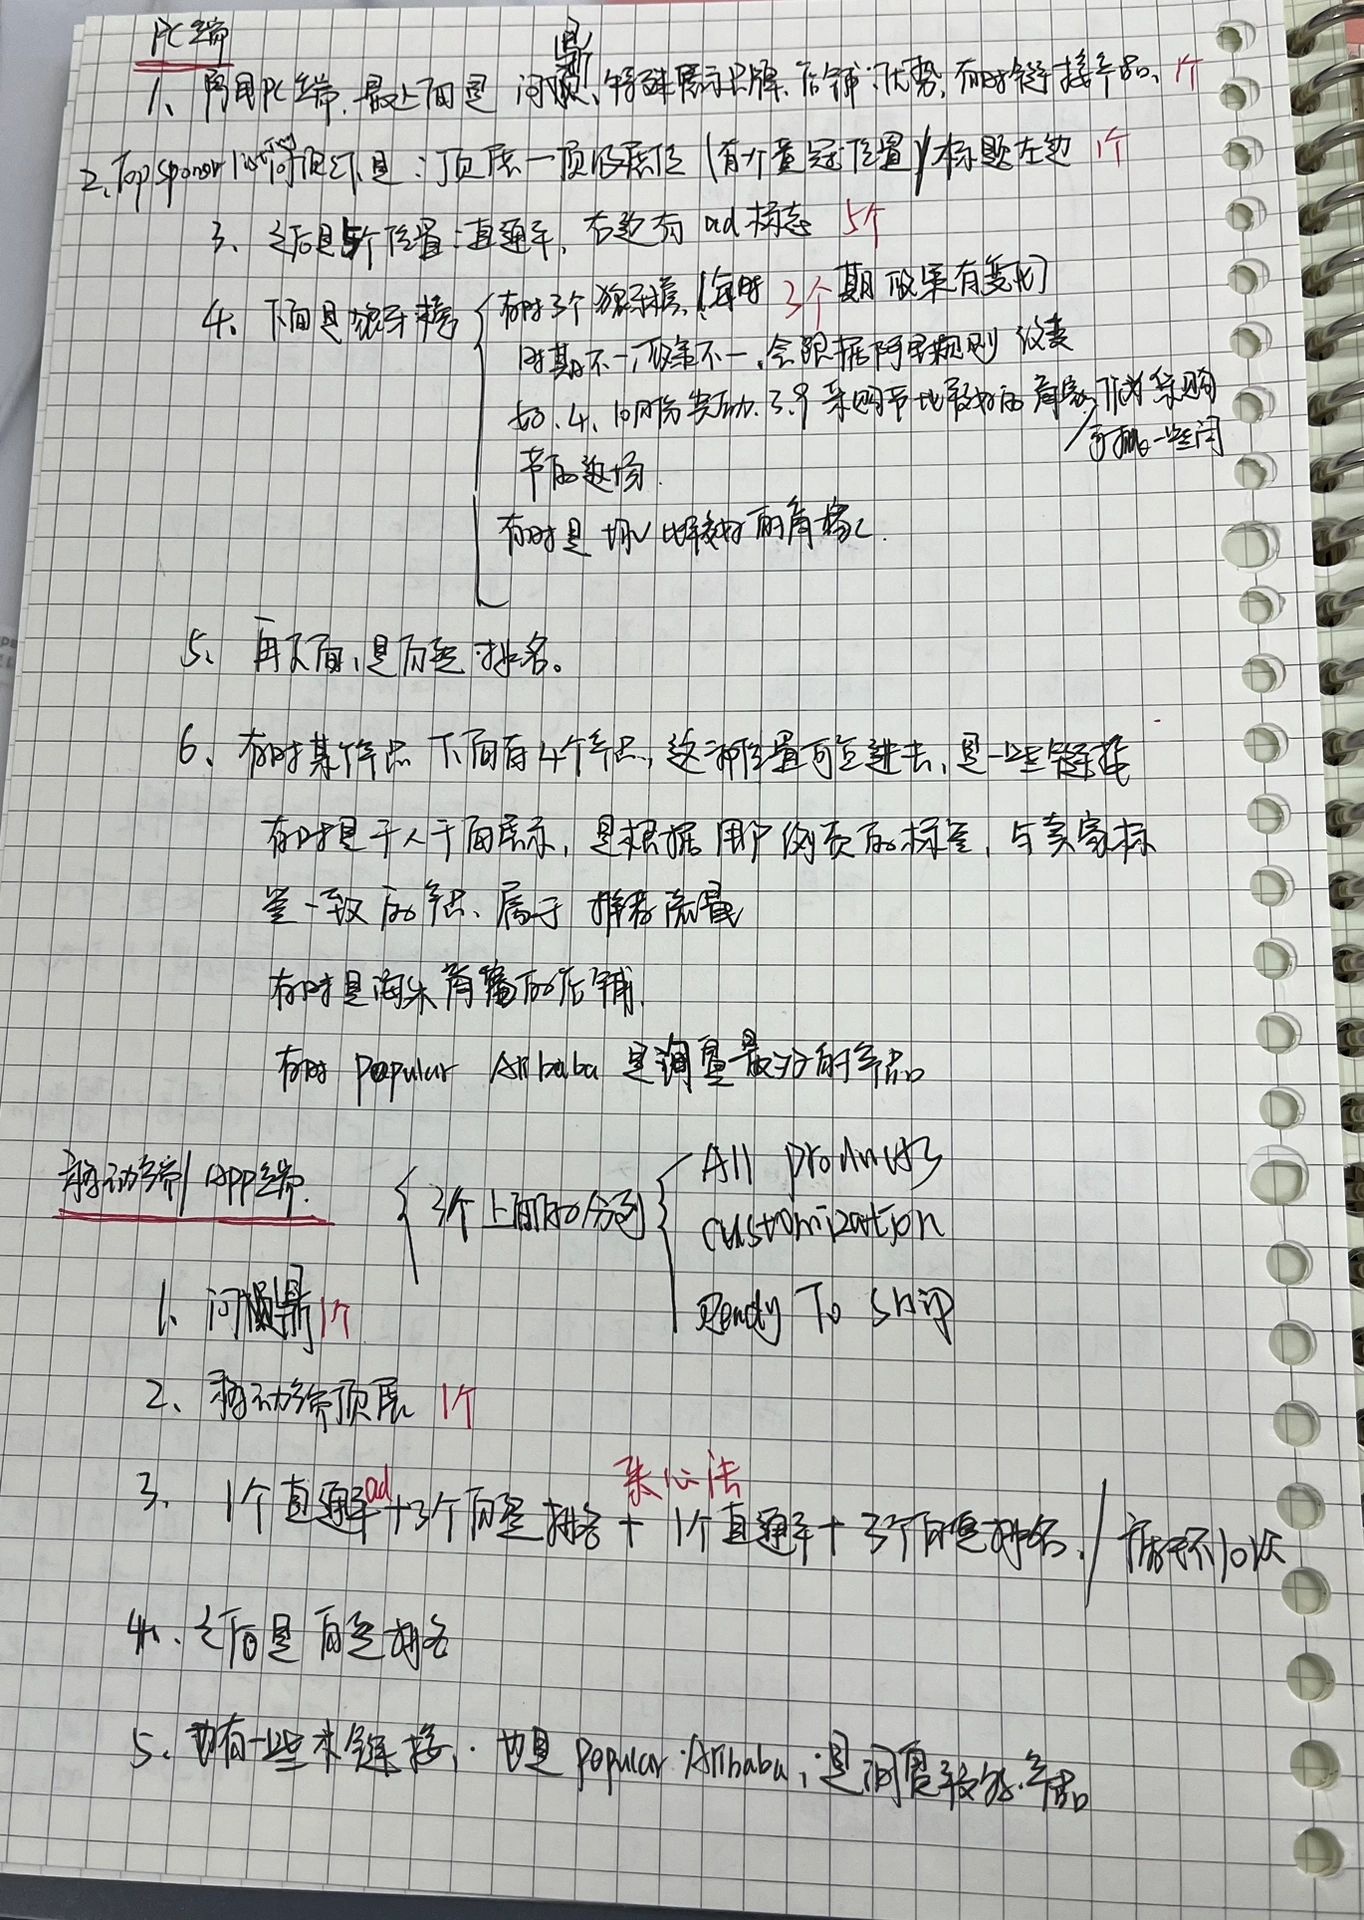 PC端
1、用PC端,最上面是 问鼎、特殊展示品牌、店铺优势,有时链接产品、1个
2、Top sponsor listing 问鼎下是:顶展—顶级展位(有个皇冠位置)/标题左边 1个
3、之后是5个位置:直通车,右边有ad标志 5个
4、下面是 有时3个 3个期政策有变化
时期不一,政策不一,会跟据阿里规则改变
如、4、10月份活动、3、9采购节比较好的商家,作为采购
节的返场
有时是 比较好的商
5、再下面,是自然排名。
6、有时某个产品下面有4个产品,这种位置可点进去,是一些链接
有时是千人千面展示,是根据用户网页的标签,与卖家标
签一致的产品、属于推荐流量
有时是 的店铺
有时 Popular Alibaba 是询量最好的产品
移动端/APP端 3个上面的分列
All products
customization
Ready To Ship
1、问鼎 1个
2、移动端顶展 1个
3、1个直通车ad+3个自然排名+1个直通车+3个自然排名、/循环10次
4、之后是自然排名
5、也有一些 链接,也是 popular Alibaba,是询量较好产品